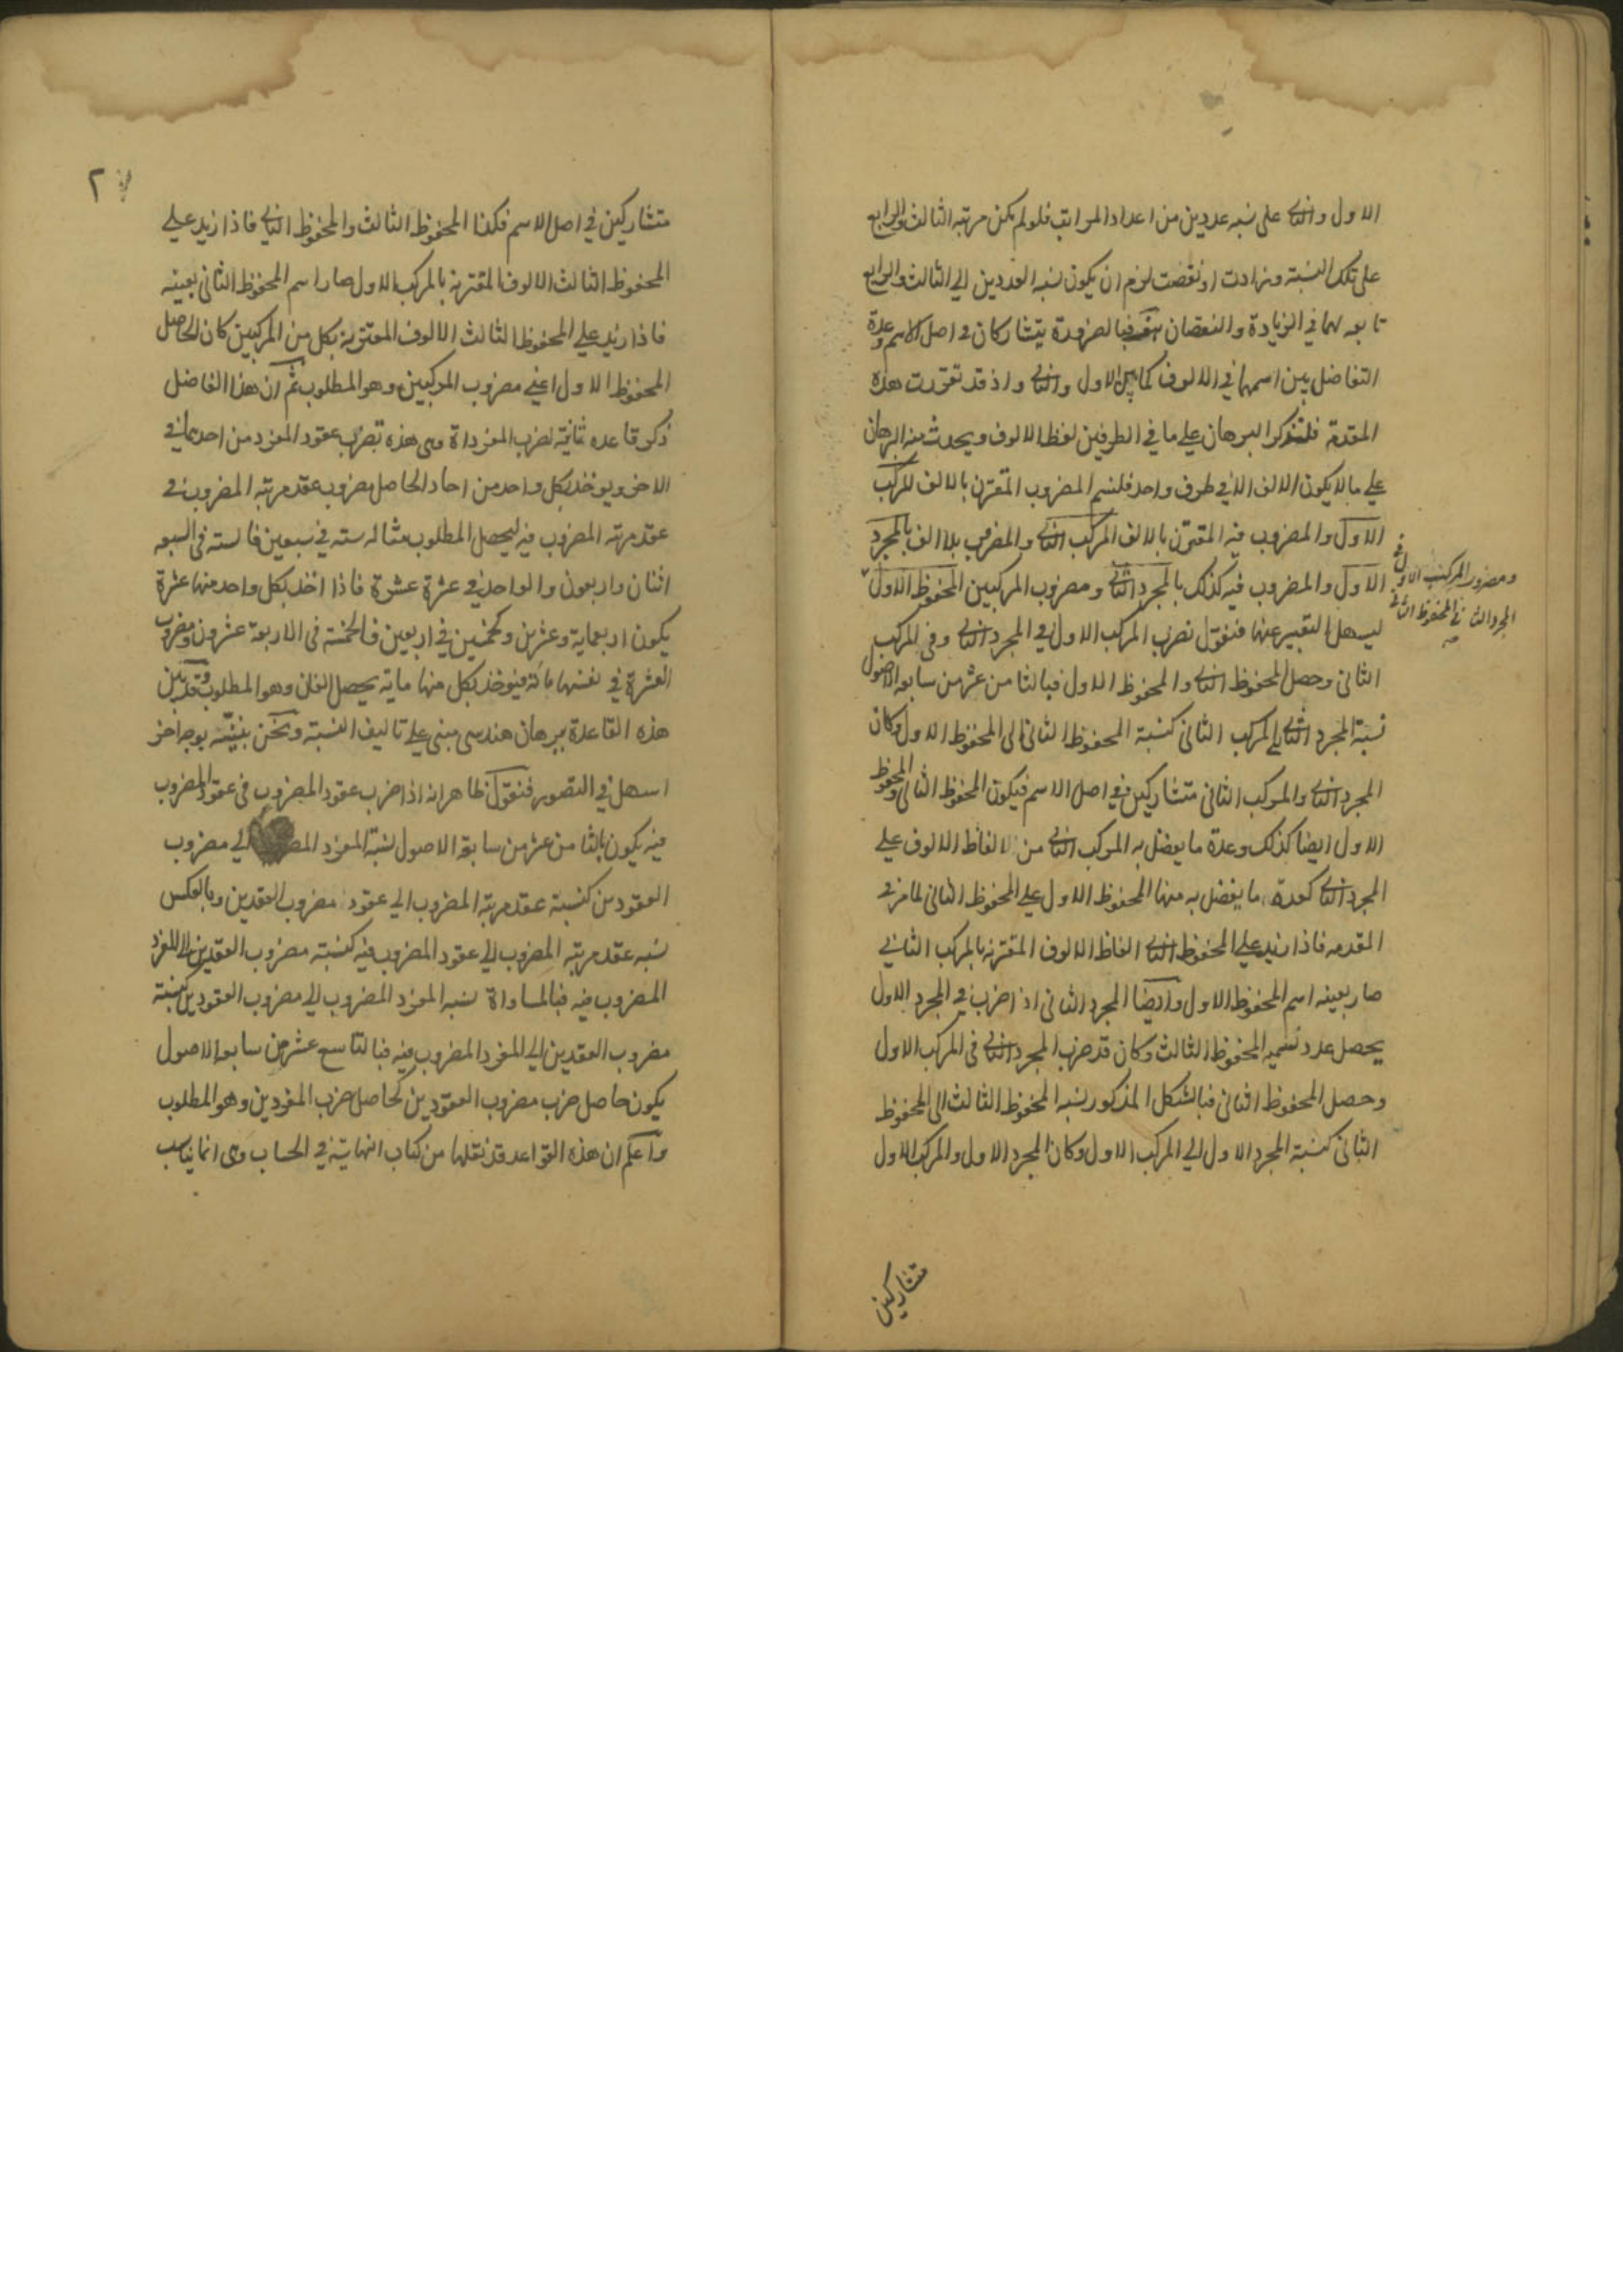 الاول والثاني على نسبه عددين من اعداد المراتب فلو لم يكن مرتبه الثالث والرابع
على تلك النسبته وزادت او نقصت لزم ان يكون نسبه العددين الي الثالث والرابع
تابعه لهما في الزيادة والنقصان فبالضرورة يتشاركان في اصل الاسم وعدة
التفاضل بين اسمهما في الالوف كما بين الاول والثاني واذ قد تقررت هذه
المقدمة فلنذكر البرهان علي ما في الطرفين لفظ الالوف ويحدث منه البرهان
علي ما لا يكون الالف الا في طرف واحد فلنسم المضروب المقترن بالالف المركب
الاول والمضروب فيه المقترن بالالف المركب الثاني والمضروب بلا الف بالمجرد
الاول والمضروب فيه كذلك بالمجرد الثاني ومضروب المركبين المحفوظ الاول
ومضروب المركب الاول في
المجرد الثاني المحفوظ الثاني
صح
ليسهل التعبير عنها فنقول نضرب المركب الاول في المجرد الثاني وفي المركب
الثاني وحصل المحفوظ الثاني والمحفوظ الاول فبالثامن عشر من سابعه الاصول
نسبة المجرد الثاني الي المركب الثاني كنسبة المحفوظ الثاني الى المحفوظ الاول وكان
المجرد الثاني والمركب الثاني متشاركين في اصل الاسم فيكون المحفوظ الثاني والمحفوظ
الاول ايضا كذلك وعدة ما يفضل به المركب الثاني من الفاظ الالوف علي
المجرد الثاني كعدة ما يفضل به منها المحفوظ الاول علي المحفوظ الثاني لما مر في
المقدمه فاذا زيد علي المحفوظ الثاني الفاظ الالوف المقترنه بالمركب الثاني
صار بعينه اسم المحفوظ الاول وايضا المجرد الثاني اذا ضرب في المجرد الاول
يحصل عدد نسميه المحفوظ الثالث وكان قد ضرب المجرد الثاني في المركب الاول
وحصل المحفوظ الثاني فبالشكل المذكور نسبه المحفوظ الثالث الى المحفوظ
الثاني كنسبة المجرد الاول الي المركب الاول وكان المجرد الاول والمركب الاول
متشاركين
٢
متشاركين في اصل الاسم فكذا المحفوظ الثالث والمحفوظ الثاني فاذا زيد علي
المحفوظ الثالث الالوف المقترنة بالمركب الاول صار اسم المحفوظ الثاني بعينه
فاذا زيد علي المحفوظ الثالث الالوف المقترنة بكل من المركبين كان الحاصل
المحفوظ الاول اعني مضروب المركبين وهو المطلوب ثم ان هذا الفاضل
ذكر قاعده ثانية لضرب المفرداة وهي هذه تضرب عقود المفرد من احدهما في
الاخر ويوخذ بكل واحد من احاد الحاصل مضروب عقد مرتبه المضروب في
عقد مرتبه المضروب فيه ليحصل المطلوب مثاله سته في سبعين فالسته في السبعه
اثنان واربعون والواحد في عشرة عشرة فاذا اخذ بكل واحد منها عشرة
يكون اربعماية وعشرين وكخمسين في اربعين فالخمسة في الاربعة عشرون ومضروب
العشرة في نفسها مائة فيوخذ بكل منها ماية يحصل الفان وهو المطلوب وقد بين
هذه القاعدة ببرهان هندسي مبني علي تاليف النسبة ونحن نبينه بوجه اخر
اسهل في التصور فنقول ظاهر انه اذا ضرب عقود المضروب في عقود المضروب
فيه يكون بالثامن عشر من سابعة الاصول نسبة المفرد الي مضروب
العقودين كنسبة عقد مرتبة المضروب الي عقود مضروب العقدين وبالعكس
نسبه عقد مرتبه المضروب الي عقود المضروب فيه كنسبته مضروب العقدين الي المفرد
المضروب فيه فبالمساواة نسبه المفرد المضروب الي مضروب العقودين كنسبة
مضروب العقدين الي المفرد المضروب فيه فبالتاسع عشر من سابعه الاصول
يكون حاصل ضرب مضروب العقودين كحاصل ضرب المفردين وهو المطلوب
واعلم ان هذه القواعد قد نقلها من كتاب النهاية في الحساب وهي انما يناسب